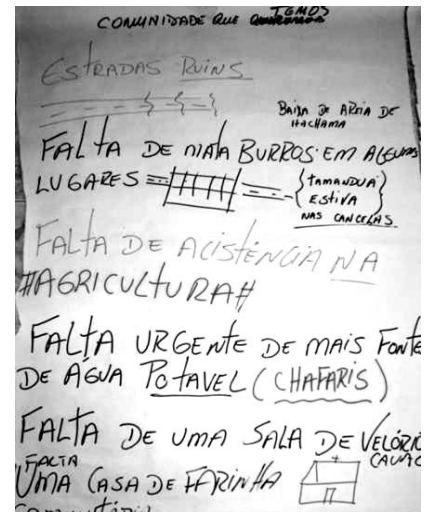 COMUNIDADE QUE TEMOS
ESTRADAS RUINS
BAIXA DE AREIA DE
ITACHAMA
FALTA DE MATA BURROS EM ALGUNS
LUGARES
TAMANDUÁ
ESTIVA
NAS CANCELAS
FALTA DE ACISTÊNCIA NA
#AGRICULTURA#
FALTA URGENTE DE MAIS FONTE
DE AGUA POTAVEL (CHAFARIS)
FALTA DE UMA SALA DE VELÓRIO
FALTA
UMA CASA DE FARINHA